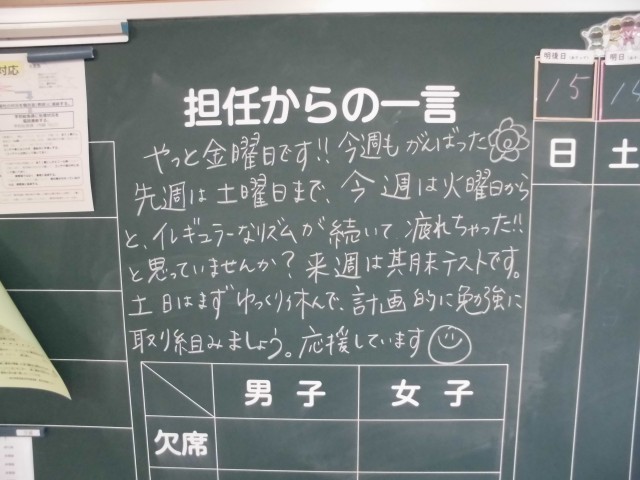 担任からの一言
やっと金曜日です!! 今週もがんばった
先週は土曜日まで、今週は火曜日から
と、イレギュラーなリズムが続いて疲れちゃった!!
と思っていませんか? 来週は期末テストです。
土日はまずゆっくり休んで、計画的に勉強に
取り組みましょう。応援しています
男子 女子
欠席
明後日 明日
15 14
日 土
対応